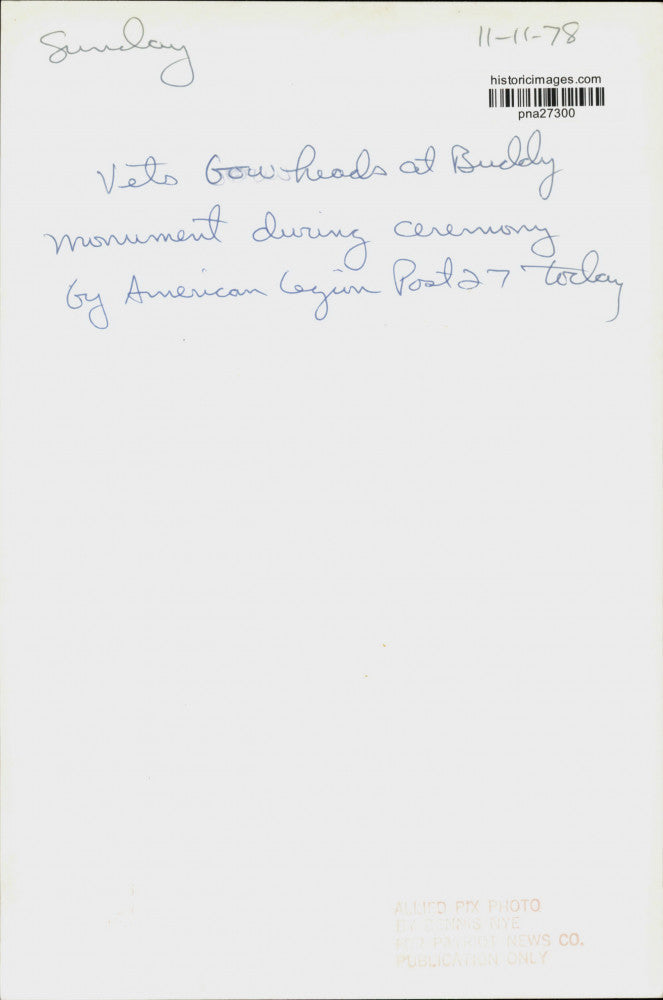 Sunday
11-11-78
historicimages.com
pna27300
Vets bow heads at Buddy
monument during ceremony
by American Legion Post 27 today
ALLIED PIX PHOTO
BY DENNIS NYE
FOR PATRIOT NEWS CO.
PUBLICATION ONLY